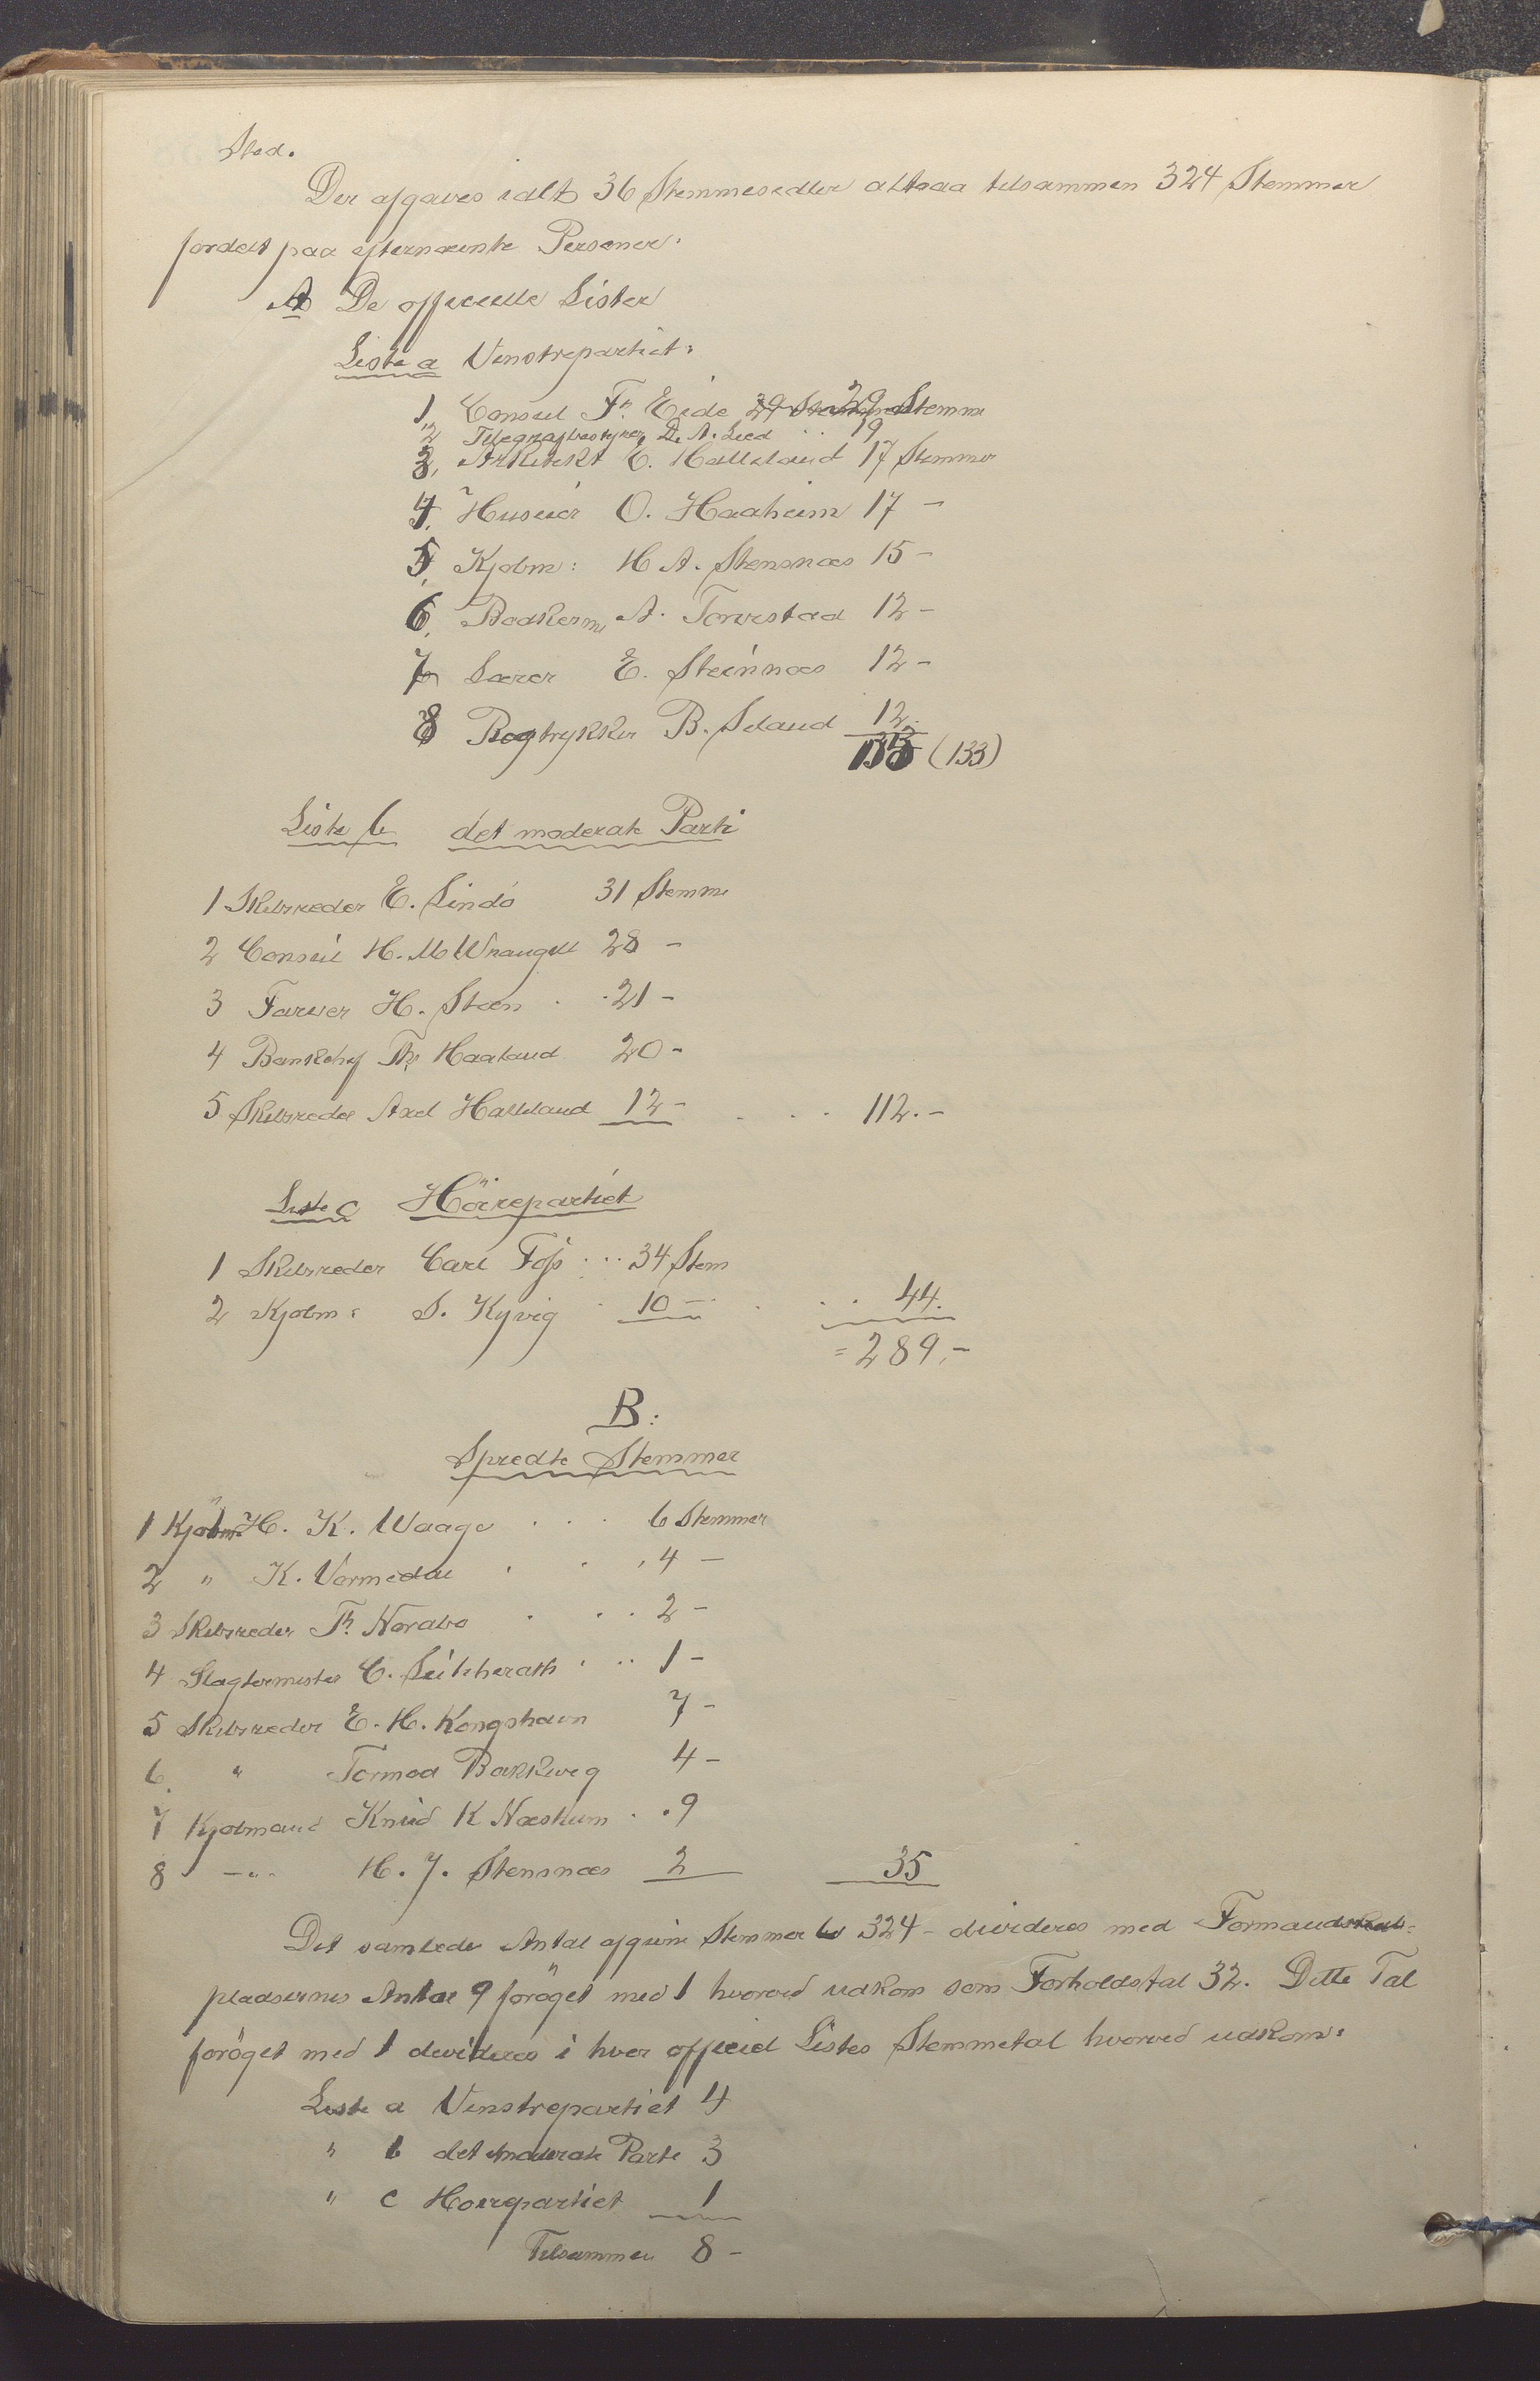 Sted.
Der afgaves ialt 36 Stemmesedler altsaa tilsammen 324 Stemmer
fordelt paa efternævnte Personer:
A De officielle Lister
Liste a Venstrepartiet:
1, Consul Fr. Eide 29 Stemme
2 Telegrafbestyrer D. A. Lied .. 19
3, Arkitekt E. Halleland 17 Stemmer
4, Huseier O. Haaheim 17 –
5, Kjøbm: H A. Stensnæs 15 –
6, Bødkerm, A. Torvestad 12 –
7 Lærer E. Steinnæs 12 –
8 Bogtrykker B. Seland 12.
133 (133)
Liste b det moderate Parti
1 Skibsreder E. Lindø 31 Stemme
2 Consul H. M Wrangell 28 –
3 Farver H. Steen . . 21 –
4 Bankchef Th. Haaland 20 –
5 Skibsreder Axel Halleland 12 – . . . 112. –
Liste c Höirepartiet
1 Skibsreder Carl Foss ... 34 Stem
2 Kjøbm: S. Kyvig . 10 – . . . 44.
= 289, –
B:
Spredte Stemmer
1 Kjøbm: H. K. Waage . . . 6 Stemmer
2 " K. Vormedal . . , 4 –
3 Skibsreder Th. Nordbø . . . 2 –
4 Slagtermester C. . .. 1 –
5 Skibsreder E. H. Kongshavn 7 –
6. " Tormod Bakkevig 4 –
7 Kjøbmand Knud K Næsheim . . 9
8 –"– H. J. Stensnæs 2 35
Det samlede Antal afgivne Stemmer 324 – divideres med Formandskabs-
pladsernes Antal 9 forøget med 1 hvorved udkom som Forholdstal 32. Dette Tal
forøget med 1 divideres i hver officiel Listes Stemmetal hvorved udkom:
Liste a Venstrepartiet 4
" b det moderate Parti 3
" c Hoirepartiet 1
Tilsammen 8 –